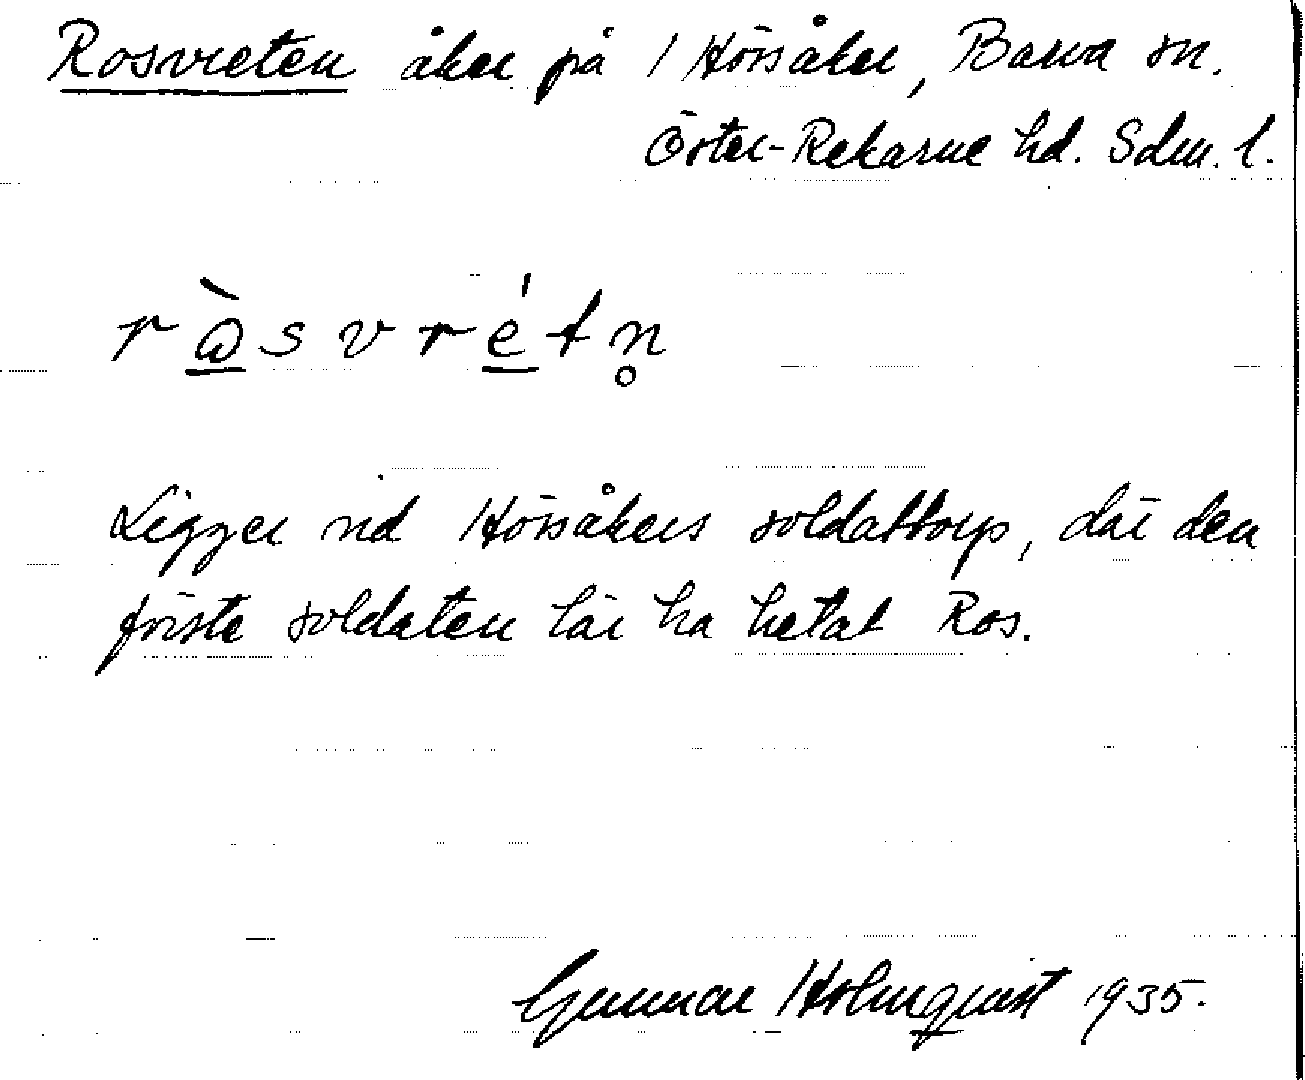 Rosvreten åker på 1 Hörsåker, Barva sn.
Öster-Rekarne hd. Sdm. l.
r ὼ s v r é t n̥
Ligger vid Hörsåkers soldattorp, där den
förste soldaten lär ha hetat Ros.
Gunnar Holmquist 1935.